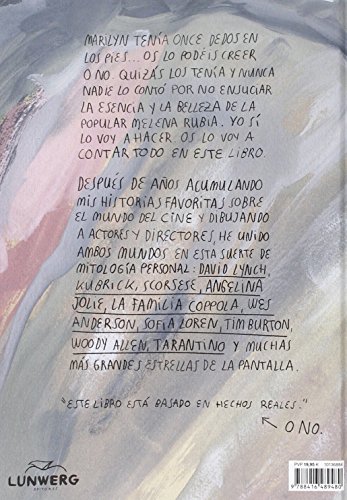 MARILYN TENÍA ONCE DEDOS EN
LOS PIES... OS LO PODÉIS CREER
O NO. QUIZÁS LOS TENÍA Y NUNCA
NADIE LO CONTÓ POR NO ENSUCIAR
LA ESENCIA Y LA BELLEZA DE LA
POPULAR MELENA RUBIA. YO SÍ
LO VOY A HACER. OS LO VOY A
CONTAR TODO EN ESTE LIBRO.
DESPUÉS DE AÑOS ACUMULANDO
MIS HISTORIAS FAVORITAS SOBRE
EL MUNDO DEL CINE Y DIBUJANDO
A ACTORES Y DIRECTORES, HE UNIDO
AMBOS MUNDOS EN ESTA SUERTE DE
MITOLOGÍA PERSONAL: DAVID LYNCH,
KUBRICK, SCORSESE, ANGELINA
JOLIE, LA FAMILIA COPPOLA, WES
ANDERSON, SOFÍA LOREN, TIM BURTON,
WOODY ALLEN, TARANTINO Y MUCHAS
MÁS GRANDES ESTRELLAS DE LA PANTALLA.
"ESTE LIBRO ESTÁ BASADO EN HECHOS REALES."
O NO.
LUNWERG
EDITORES
PVP 19,95 € 10136884
9 788416 489480